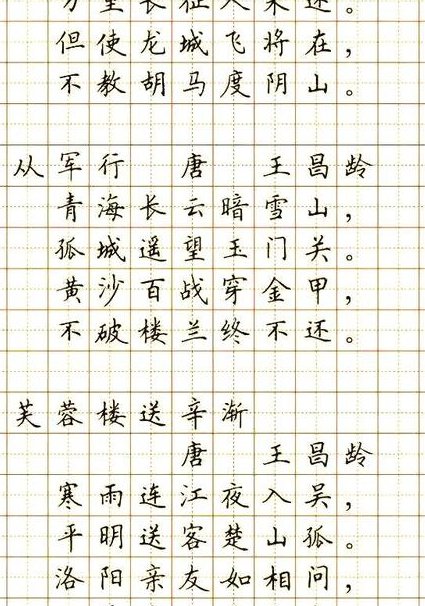 万里长征人未还。
但使龙城飞将在，
不教胡马度阴山。
从军行 唐 王昌龄
青海长云暗雪山，
孤城遥望玉门关。
黄沙百战穿金甲，
不破楼兰终不还。
芙蓉楼送辛渐
唐 王昌龄
寒雨连江夜入吴，
平明送客楚山孤。
洛阳亲友如相问，